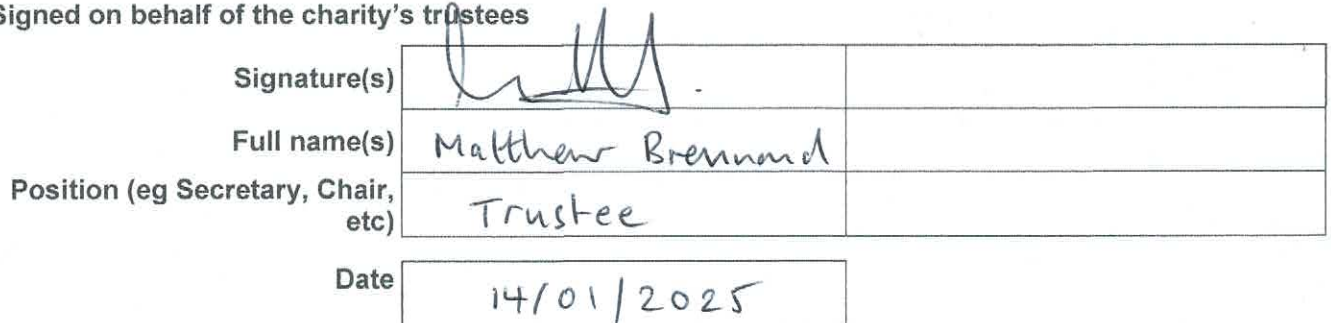 Signed on behalf of the charity's trustees
Signature(s)
Full name(s) Matthew Brennand
Position (eg Secretary, Chair,
etc) Trustee
Date 14/01/2025